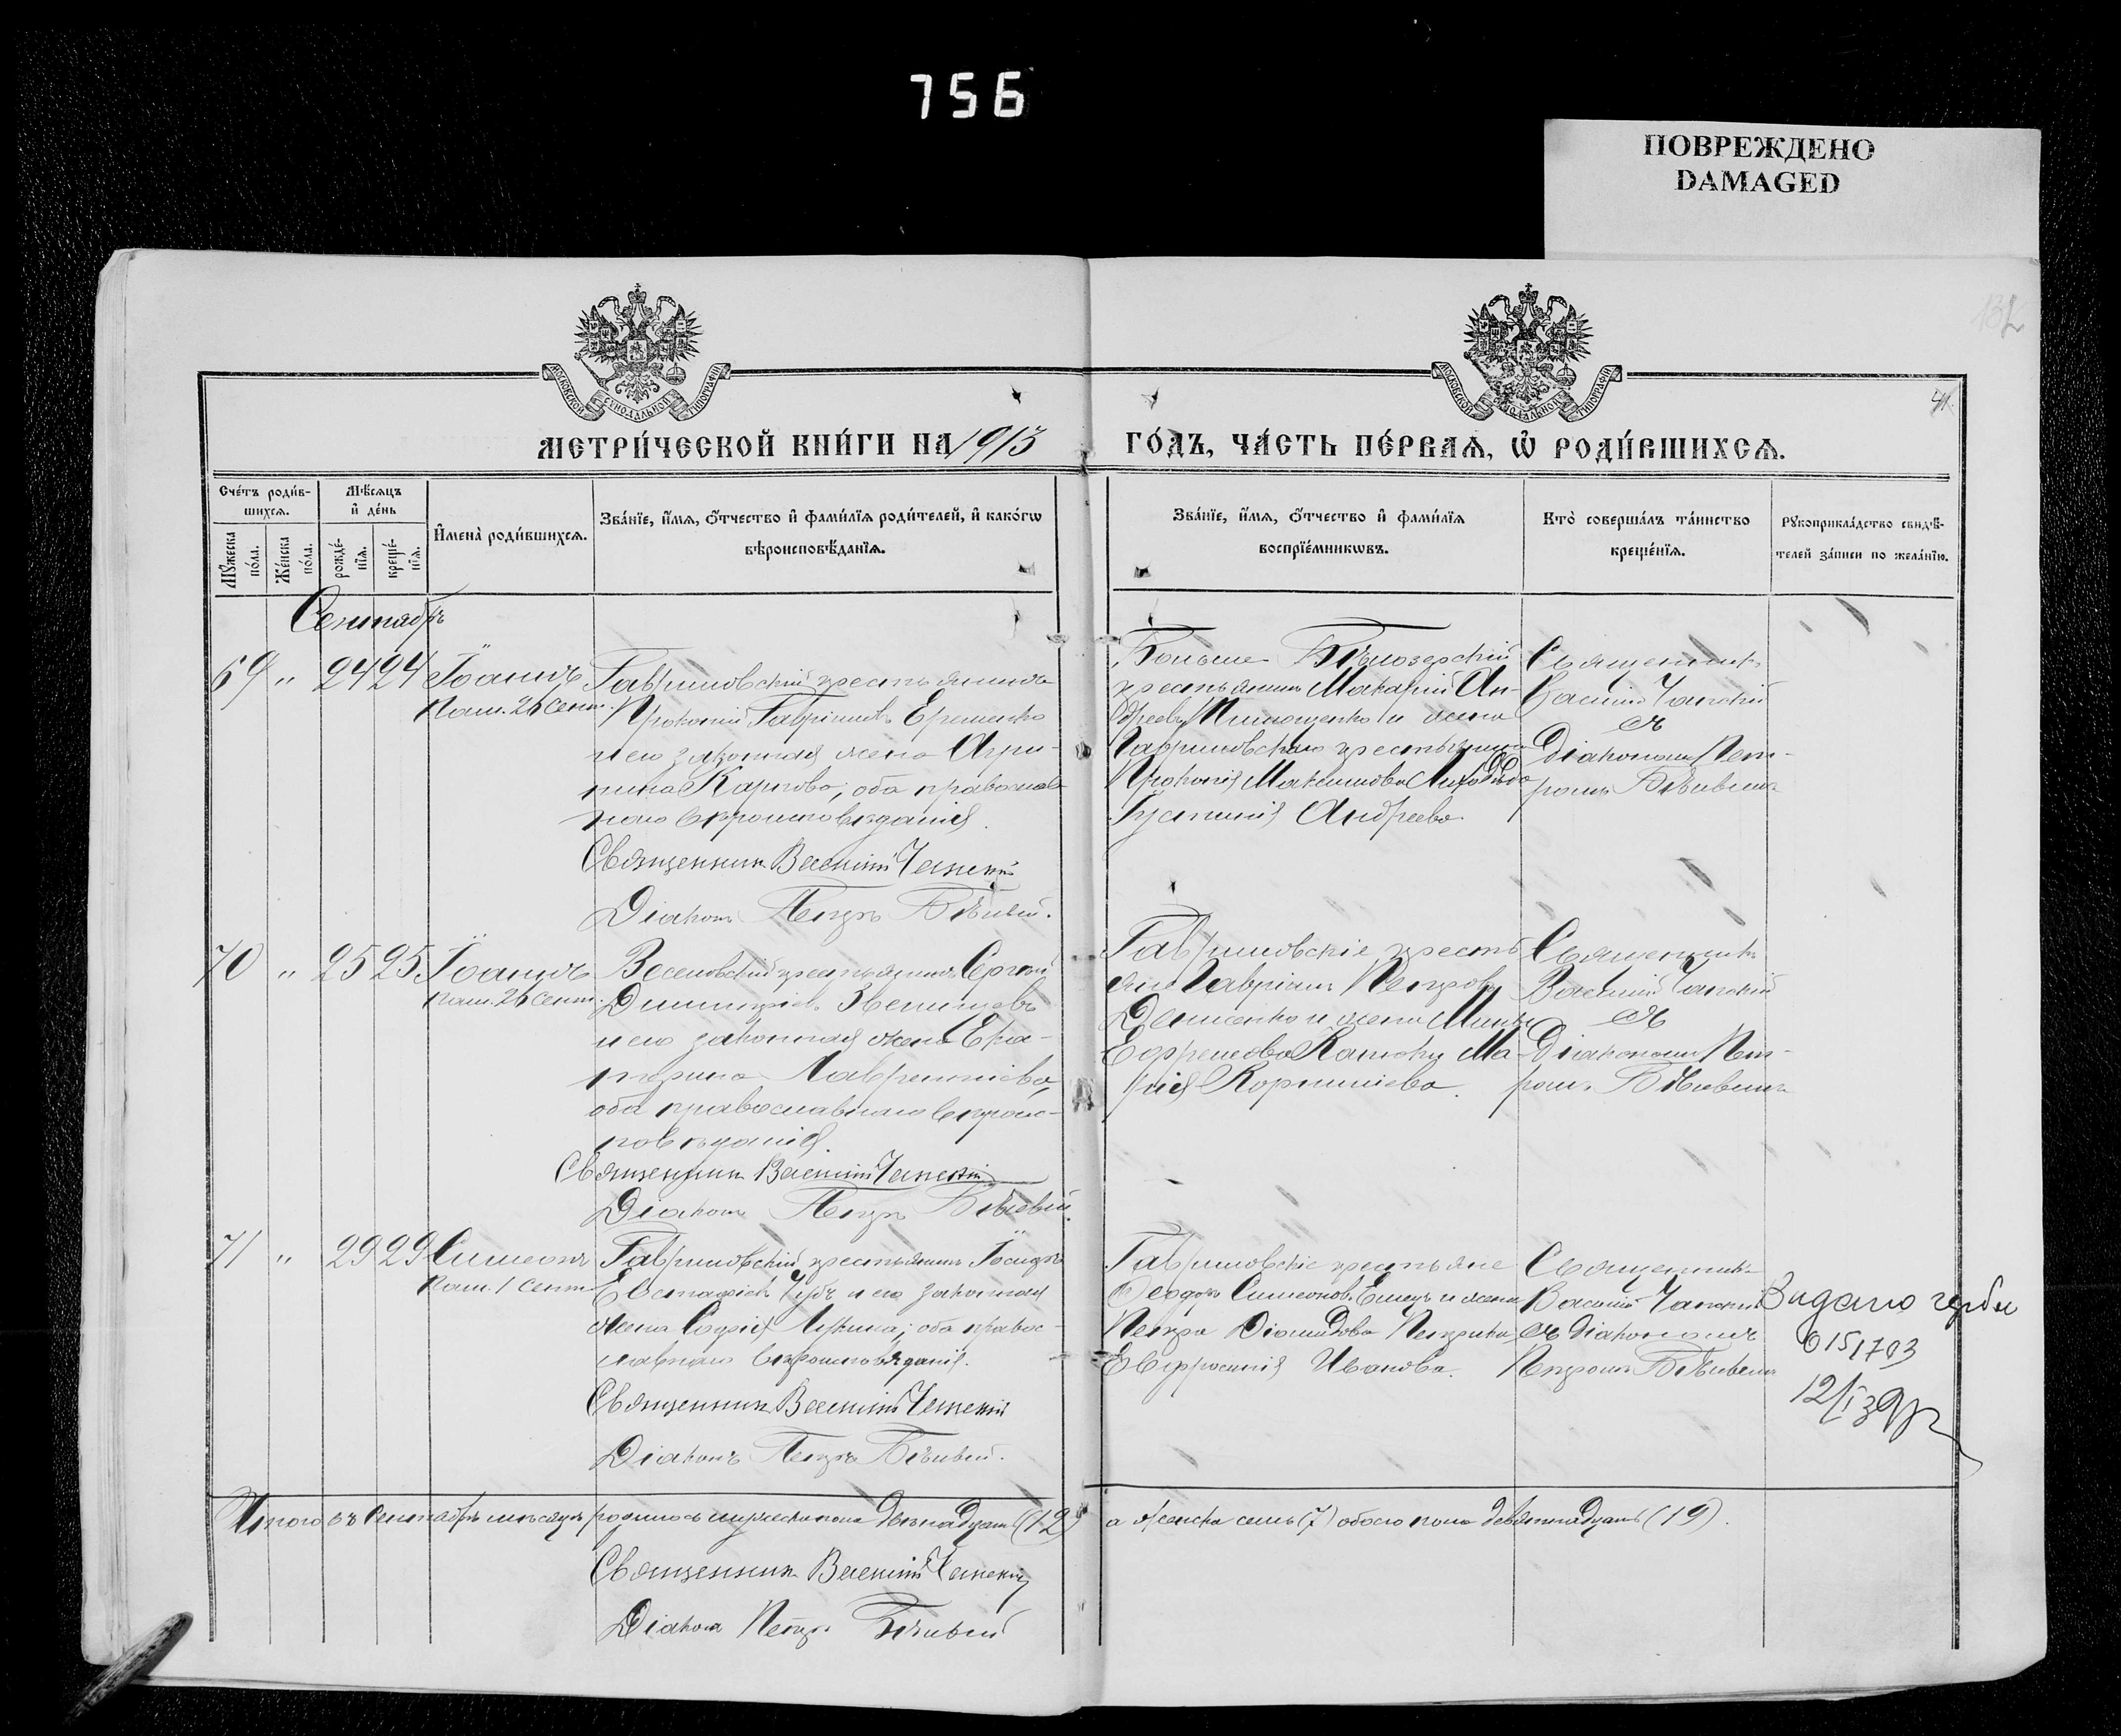 756
ПОВРЕЖДЕНО
DAMAGED
132
41.
МОСКОВСКОЙ СУНОДАЛЬНОЙ ТИПОГРАФІИ
МОСКОВСКОЙ СУНОДАЛЬНОЙ ТИПОГРАФІИ
МЕТРИ́ЧЕСКОЙ КНИ́ГИ НА 1913
ГО́ДЪ, ЧА́СТЬ ПЕ́РВАѦ, Ѡ҆ РОДИ́ВШИХСѦ.
Сче́тъ роди́в-
шихсѧ.
Мꙋ́жеска по́ла.
Же́нска по́ла.
Мѣ́сѧцъ
и҆ де́нь
рожде́-
нїѧ.
креще́-
нїѧ.
И҆мена̀ роди́вшихсѧ.
Зва́нїе, и҆́мѧ, ѻ҆́тчество и҆ фами́лїѧ роди́телей, и҆ како́гѡ
вѣроисповѣ́данїѧ.
Зва́нїе, и҆́мѧ, ѻ҆́тчество и҆ фами́лїѧ
воспрїе́мникѡвъ.
Кто̀ соверша́лъ та́инство
креще́нїѧ.
Рꙋкоприкла́дство свидѣ́-
телей за́писи по жела́нїю.
Сентябрь
69 " 24 24 Іоаннъ
пам. 26 сент.
Гавриловскій крестьянинъ
Прокопій Гавріиловъ Еременко
и его законная жена Агри-
пина Карпова, оба православ-
наго вѣроисповѣданія.
Священникъ Василій Чапскій
Діаконъ Петръ Бѣлый.
Больше-Бѣлозерскій
крестьянинъ Макарій Ан-
дреевъ и жена
Гавриловскаго крестьянина
Прокопія Максимова
Іустинія Андреева.
Священникъ
Василій Чапскій
съ
Діакономъ Пет-
ромъ
70 " 25 25 Іоаннъ
пам. 26 сент.
Веселовскій крестьянинъ Сергій
Димитріевъ Звенигцевъ
и его законная жена Ека-
терина Лаврентіева,
оба православнаго вѣроис-
повѣданія.
Священникъ Василій Чапскій
Діаконъ Петръ
Гавриловскіе кресть-
яне Гавріилъ Петровъ
Денисенко и жена
Ефремова Ма-
рія Корнилиева.
Священникъ
Василій Чапскій
съ
Діакономъ Пет-
ромъ
71 " 29 29 Симеонъ
пам. 1 сент.
Гавриловскій крестьянинъ Іосифъ
Евстафіевъ Чубъ и его законная
жена Софія Лукина, оба правос-
лавнаго вѣроисповѣданія.
Священникъ Василій Чапскій
Діаконъ Петръ
Гавриловскіе крестьяне
Феодоръ Симеоновъ Емецъ и жена
Петра Діомидова
Евфросинія Иванова.
Священникъ
Василій Чапскій
съ діакономъ
Петромъ
Видано
12/I 39 р
Итого въ сентябрѣ мѣсяцѣ родилось мужеска пола двѣнадцать (12)
а женска семь (7) обоего пола девятнадцать (19).
Священникъ Василій Чапскій
Діаконъ Петръ